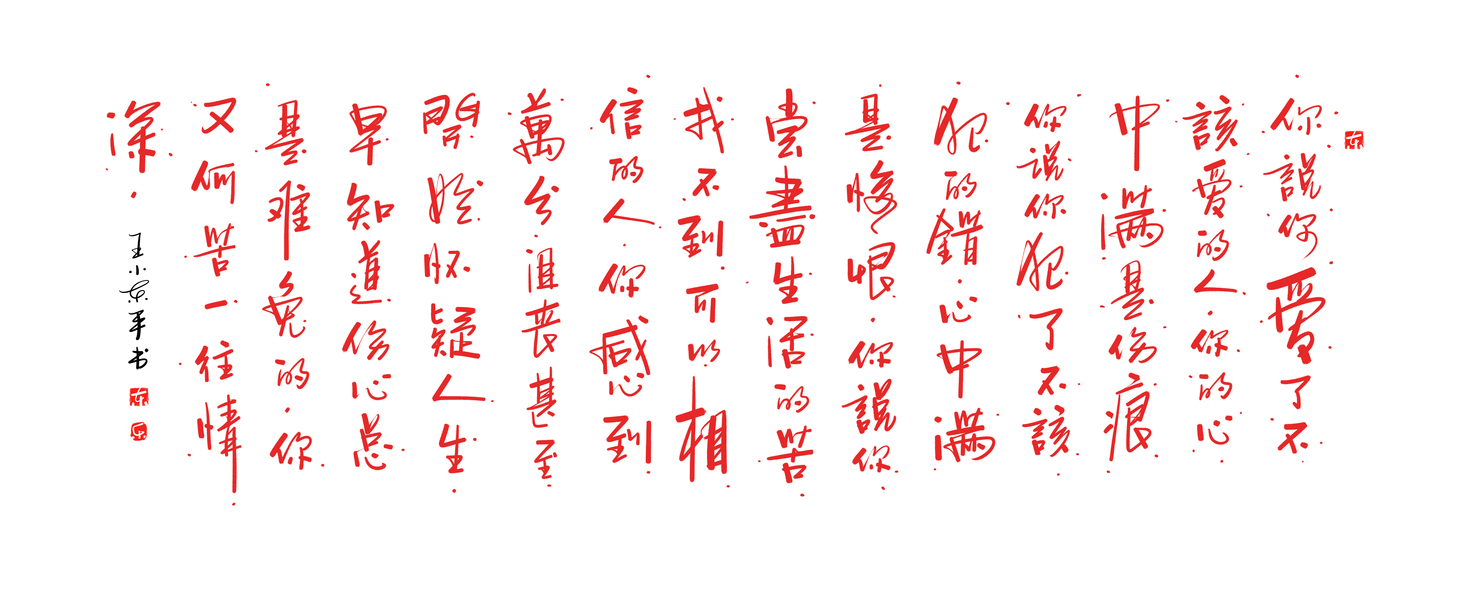 你說你愛了不
該愛的人，你的心
中滿是伤痕
你说你犯了不該
犯的錯，心中滿
是悔恨，你說你
尝盡生活的苦
找不到可以相
信的人，你感到
萬分沮丧甚至
開始怀疑人生
早知道伤心总
是难免的，你
又何苦一往情
深，
王小 书